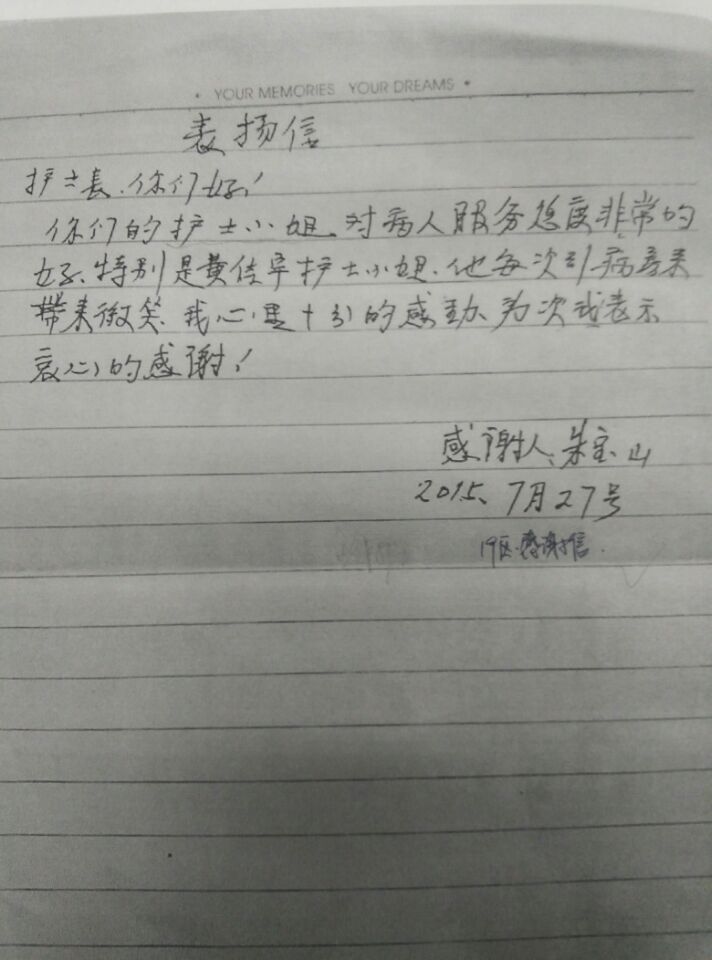 • YOUR MEMORIES YOUR DREAMS •
表扬信
护士长、你们好!
你们的护士小姐、对病人服务态度非常的
好、特别是黄佳宇护士小姐、他每次到病房来
带来微笑、我心里十分的感动、为次我表示
衷心的感谢!
感谢人、朱宝山
2015、7月27号
19区·感谢信.